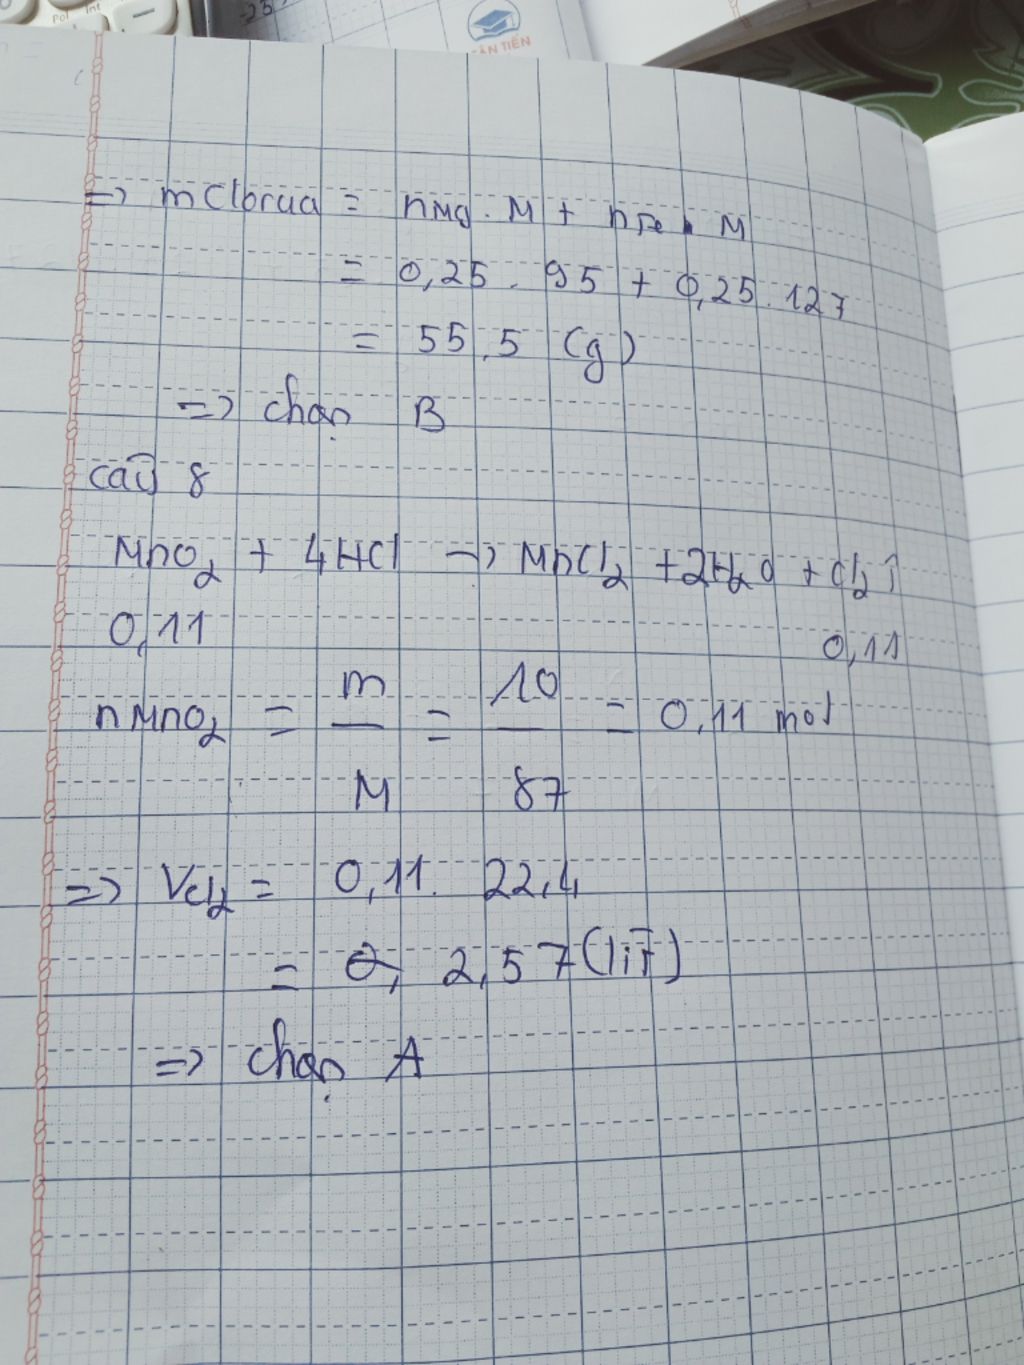 Pol Int
ÂN TIẾN
=> mClorua = nMg . M + nFe . M
= 0,25 . 95 + 0,25 . 127
= 55,5 (g)
=> chọn B
câu 8
MnO₂ + 4HCl -> MnCl₂ + 2H₂O + Cl₂↑
0,11 0,11
nMnO₂ = m/M = 10/87 = 0,11 mol
=> VCl₂ = 0,11 . 22,4
= 2,57 (lít)
=> chọn A